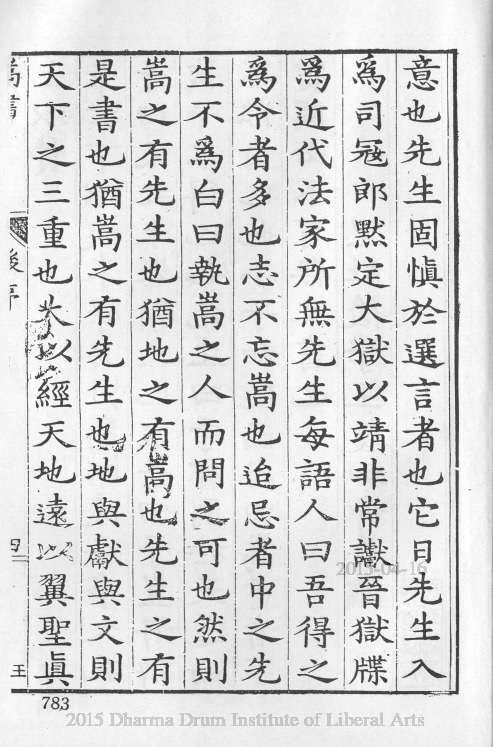 意也先生固慎於選言者也它日先生入
爲司冦郎黙定大獄以靖非常讞晉獄牒
爲近代法家所無先生每語人曰吾得之
爲令者多也志不忘嵩也追忌者中之先
生不爲白曰執嵩之人而問之可也然則
嵩之有先生也猶地之有嵩也先生之有
是書也猶嵩之有先生也地與獻與文則
天下之三重也大以經天地遠以翼聖眞
嵩書 後序 四 王
783
2015-04-16
2015 Dharma Drum Institute of Liberal Arts